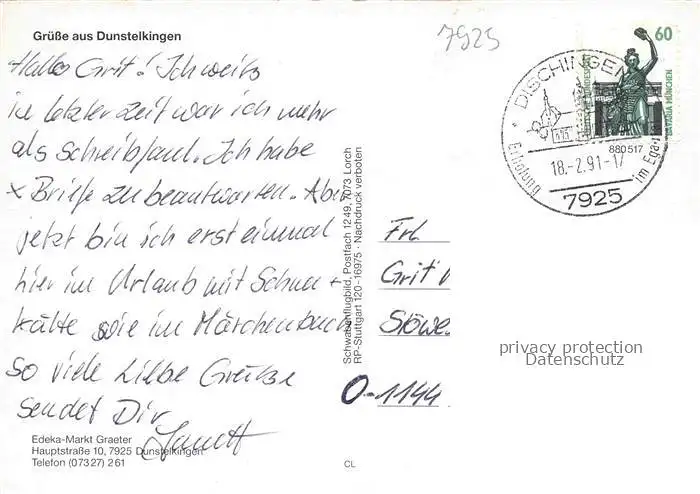 Grüße aus Dunstelkingen
7925
Hallo Grit! Ich weiß
in letzter Zeit war ich mehr
als schreibfaul. Ich habe
x Briefe zu beantworten. Aber
jetzt bin ich erst einmal
hier im Urlaub mit Schnee +
kälte wie im Märchenbuch
So viele Liebe Grüße
sendet Dir
Edeka-Markt Graeter
Hauptstraße 10, 7925 Dunstelkingen
Telefon (07327) 261
Schwabenflugbild, Postfach 1249, 7073 Lorch
RP-Stuttgart 120-16975 · Nachdruck verboten
CL
60
BAVARIA MÜNCHEN
DISCHINGEN
880517
18.-2.91-17
Erholung im Egau
7925
Frl
Grit
Stöwe
O-1144
privacy protection
Datenschutz